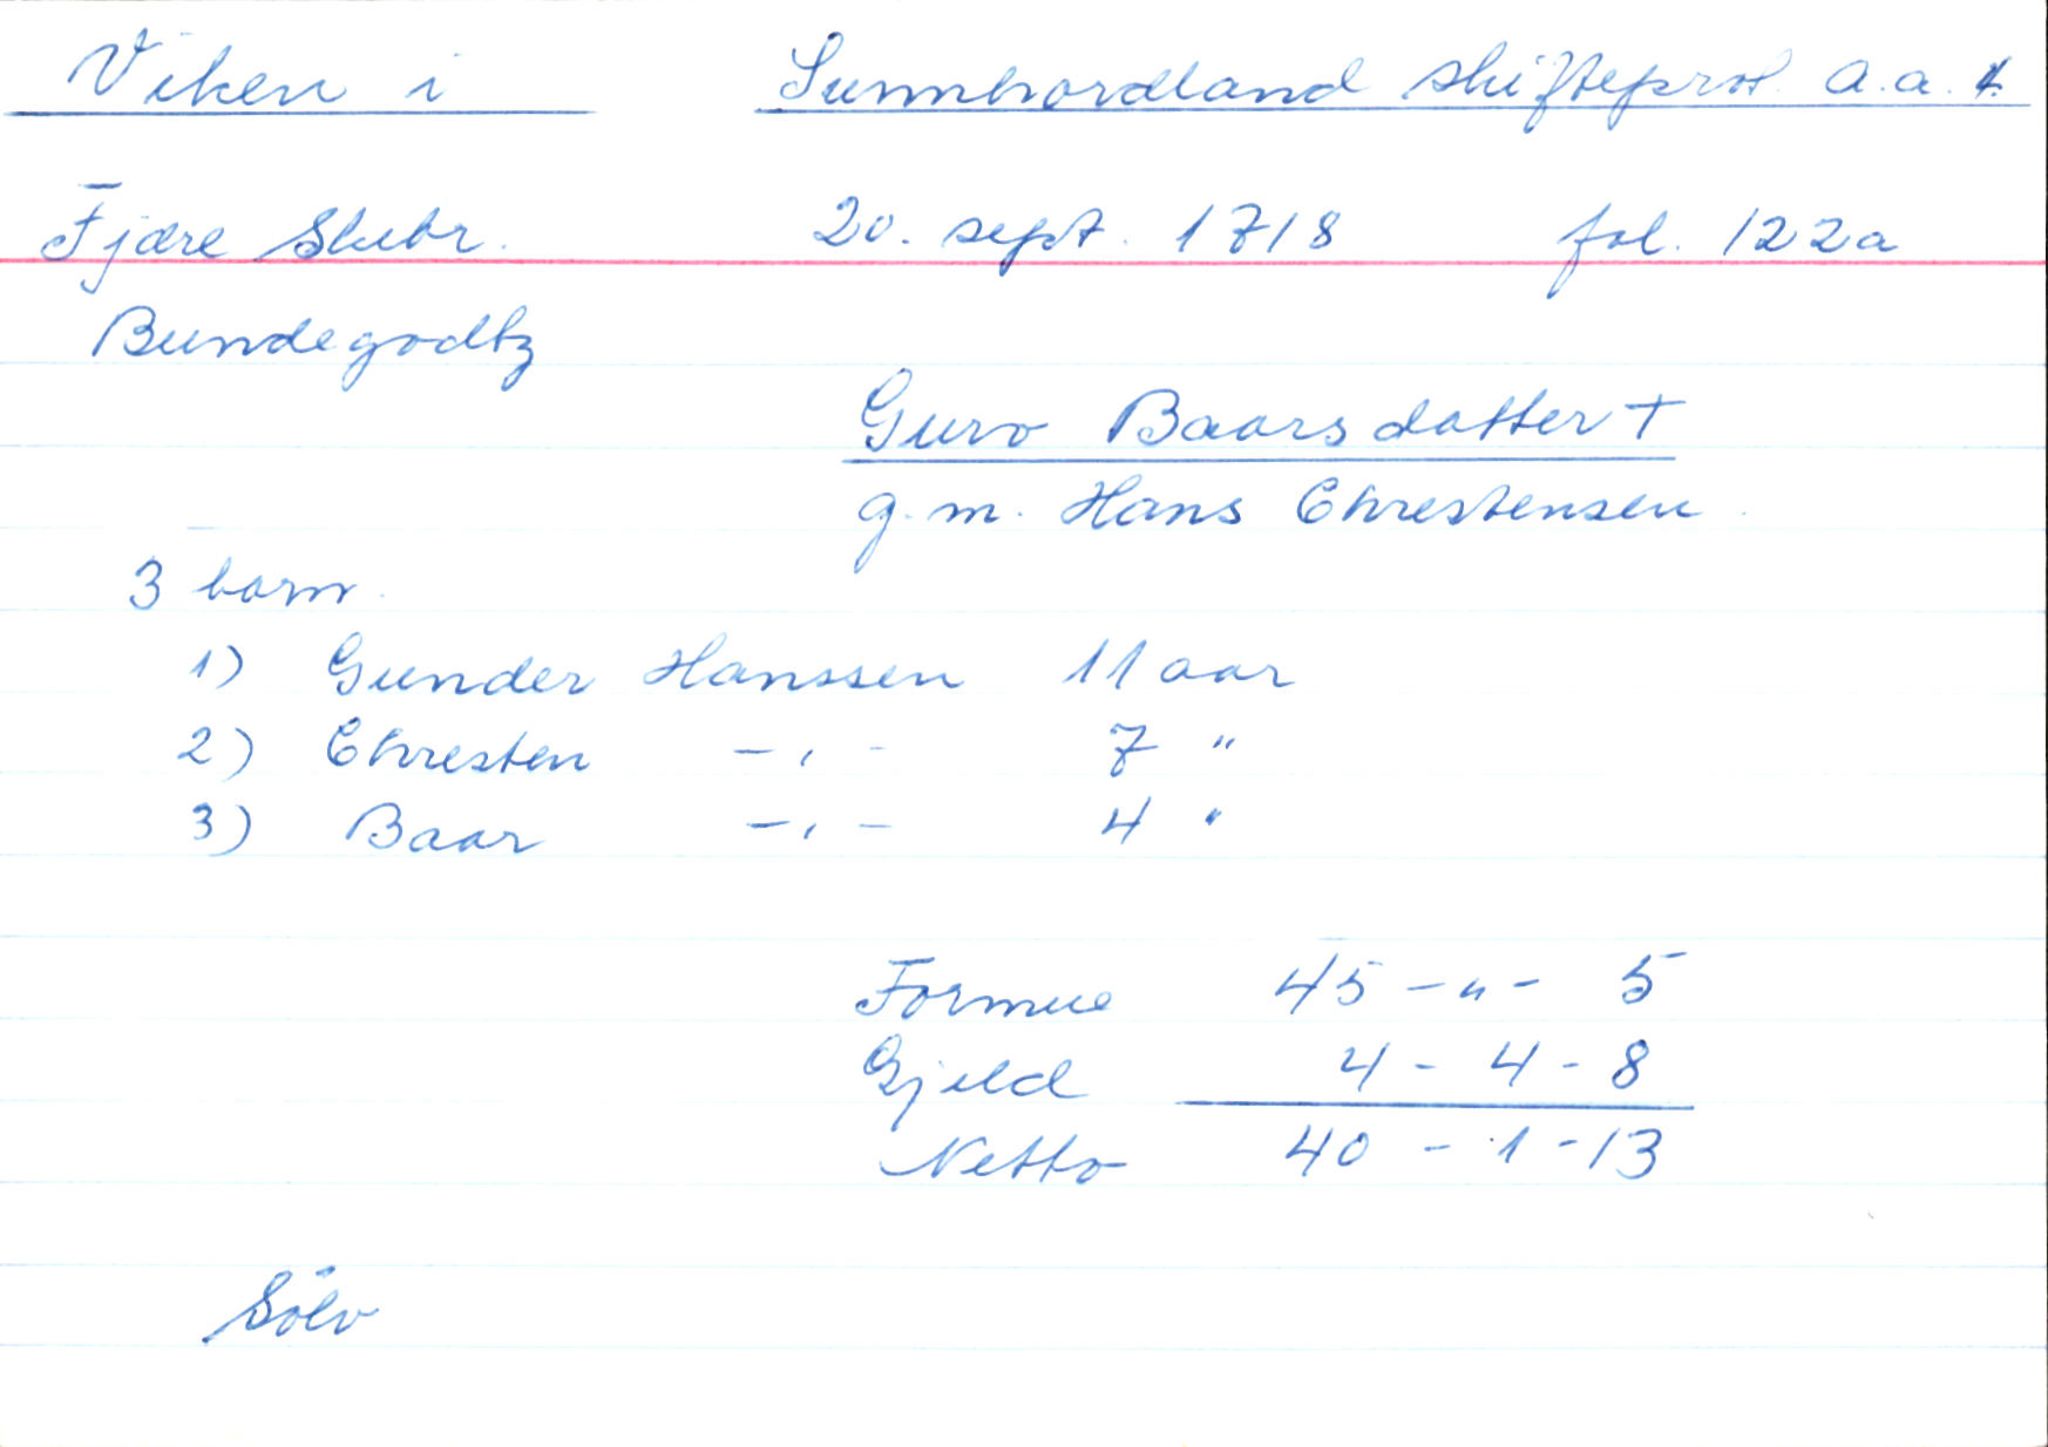 Viken i Sunnhordland skifteprot. a.a.
Fjære Skibr. 20. sept. 1718 fol. 122a
Bundegodtz
Guro Baarsdatter +
g.m. Hans Chrestensen
3 barn
1) Gunder Hanssen 11 aar
2) Chresten -,- 7 "
3) Baar -,- 4 "
Formue 45 - " - 5
Gjeld 4 - 4 - 8
Netto 40 - 1 - 13
Sölv